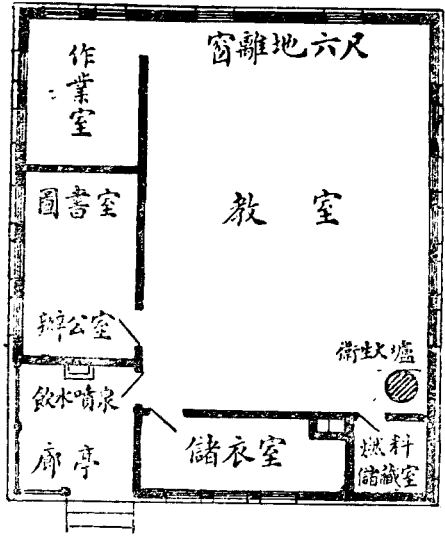 窗離地六尺
作業室
教室
圖書室
辦公室
衛生火爐
飲水噴泉
儲衣室
燃料
儲藏室
廊亭